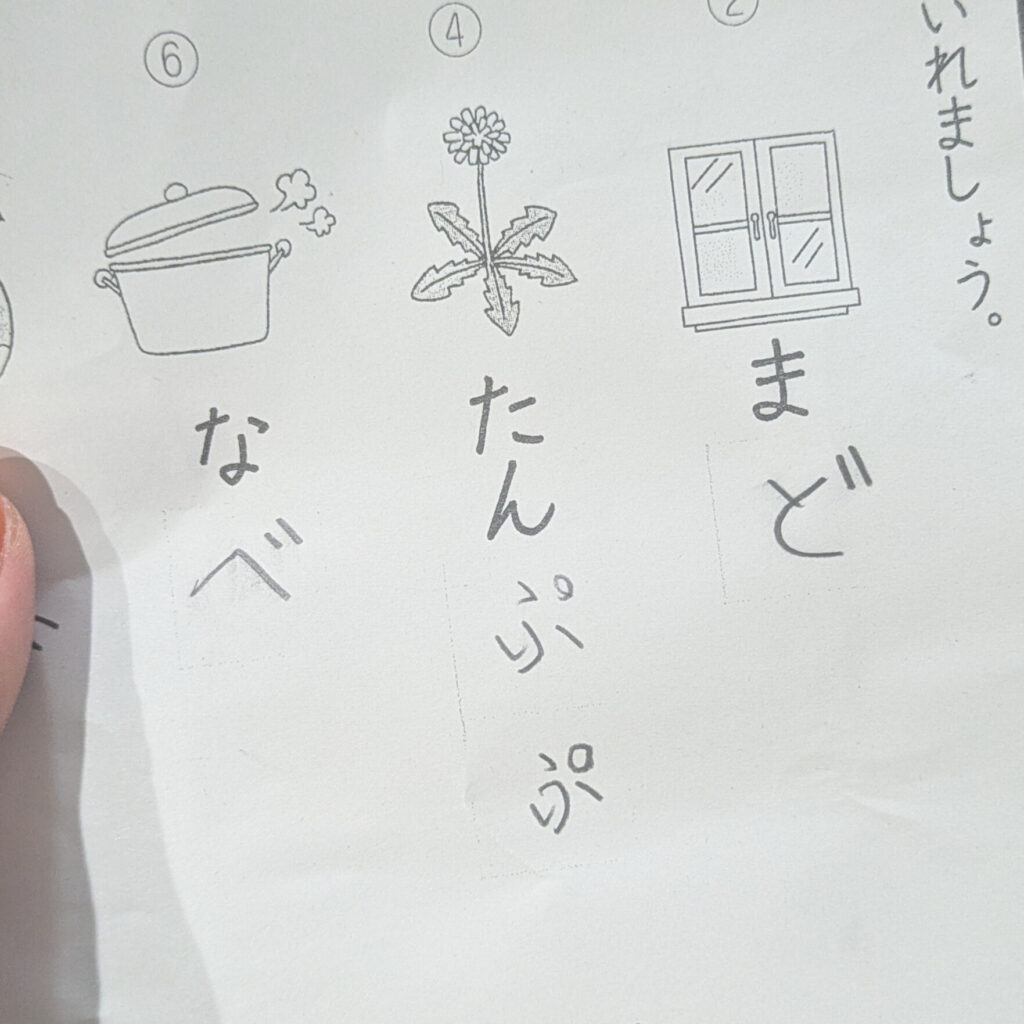 いれましょう。
②
まど
④
たんぷぷ
⑥
なべ